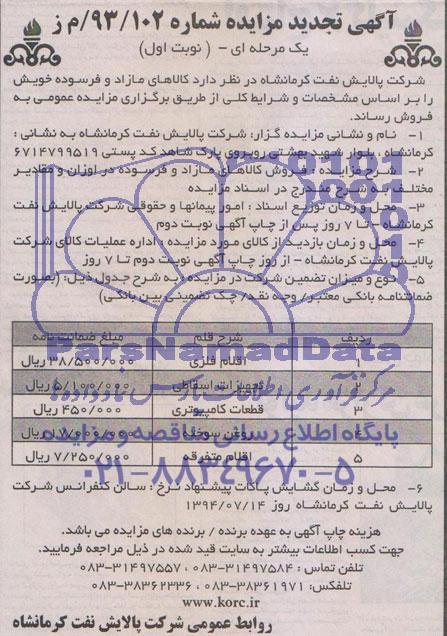 آگهی تجدید مزایده شماره ۹۳/۱۰۲/م ز
یک مرحله ای - ( نوبت اول)
شرکت پالایش نفت کرمانشاه در نظر دارد کالاهای مازاد و فرسوده خویش
را بر اساس مشخصات و شرایط کلی از طریق برگزاری مزایده عمومی به
فروش رساند.
۱- نام و نشانی مزایده گزار: شرکت پالایش نفت کرمانشاه به نشانی :
کرمانشاه ، بلوار شهید بهشتی روبروی پارک شاهد کد پستی ۶۷۱۴۷۹۹۵۱۹
۲- شرح مزایده : فروش کالاهای مازاد و فرسوده در اوزان و مقادیر
مختلف به شرح مندرج در اسناد مزایده
۳- محل و زمان توزیع اسناد : امور پیمانها و حقوقی شرکت پالایش نفت
کرمانشاه - تا ۷ روز پس از چاپ آگهی نوبت دوم
۴- محل و زمان بازدید از کالای مورد مزایده : اداره عملیات کالای شرکت
پالایش نفت کرمانشاه - از روز چاپ آگهی نوبت دوم تا ۷ روز
۵- نوع و میزان تضمین شرکت در مزایده : به شرح جدول ذیل: (بصورت
ضمانتنامه بانکی معتبر/ وجه نقد/ چک تضمینی بین بانکی)
ردیف شرح قلم مبلغ ضمانت نامه
اقلام فلزی ۳۸/۵۰۰/۰۰۰ ریال
ParsNamadData
۲ تجهیزات اسقاطی ۵/۱۰۰/۰۰۰ ریال
۳ قطعات کامپیوتری ۴۵۰/۰۰۰ ریال
۴ روغن سوخته ریال
پایگاه اطلاع رسانی مناقصه و مزایده
۵ اقلام متفرقه ۷/۲۵۰/۰۰۰ ریال
۰۲۱-۸۸۳۴۹۶۷۰-۵
۶- محل و زمان گشایش پاکات پیشنهاد نرخ : سالن کنفرانس شرکت
پالایش نفت کرمانشاه روز ۱۳۹۴/۰۷/۱۴
هزینه چاپ آگهی به عهده برنده / برنده های مزایده می باشد.
جهت کسب اطلاعات بیشتر به سایت قید شده در ذیل مراجعه فرمایید.
تلفن تماس : ۳۱۴۹۷۵۸۴-۰۸۳ ، ۳۱۴۹۷۵۵۷-۰۸۳
تلفکس: ۳۸۳۶۱۹۷۱-۰۸۳ ، ۳۸۳۶۲۳۳۶-۰۸۳
www.korc.ir
روابط عمومی شرکت پالایش نفت کرمانشاه